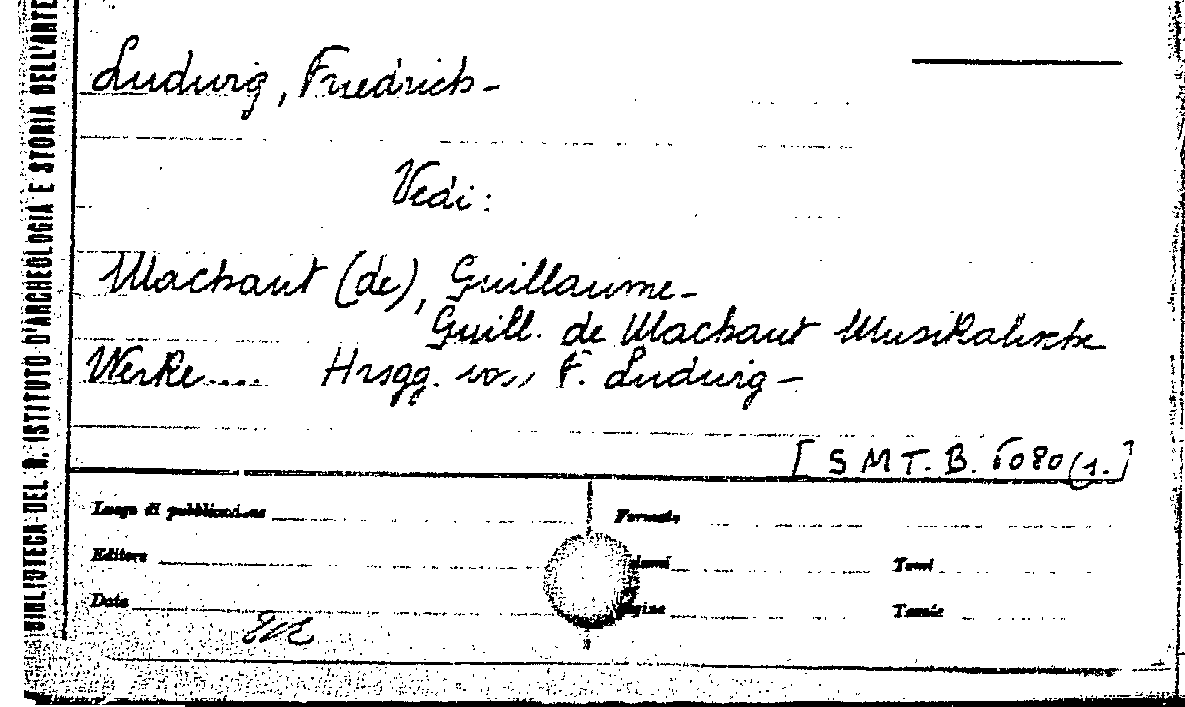 BIBLIOTECA DEL R. ISTITUTO D'ARCHEOLOGIA E STORIA DELL'ARTE
Ludwig, Friedrich -
Vedi:
Machaut (de), Guillaume -
Guill. de Machaut Musikalische
Werke.... Hrsgg. von F. Ludwig -
[SMT. B. 6080(1.]
Luogo di pubblicazione
Formato
Editore
Tomi
Data
Tavole